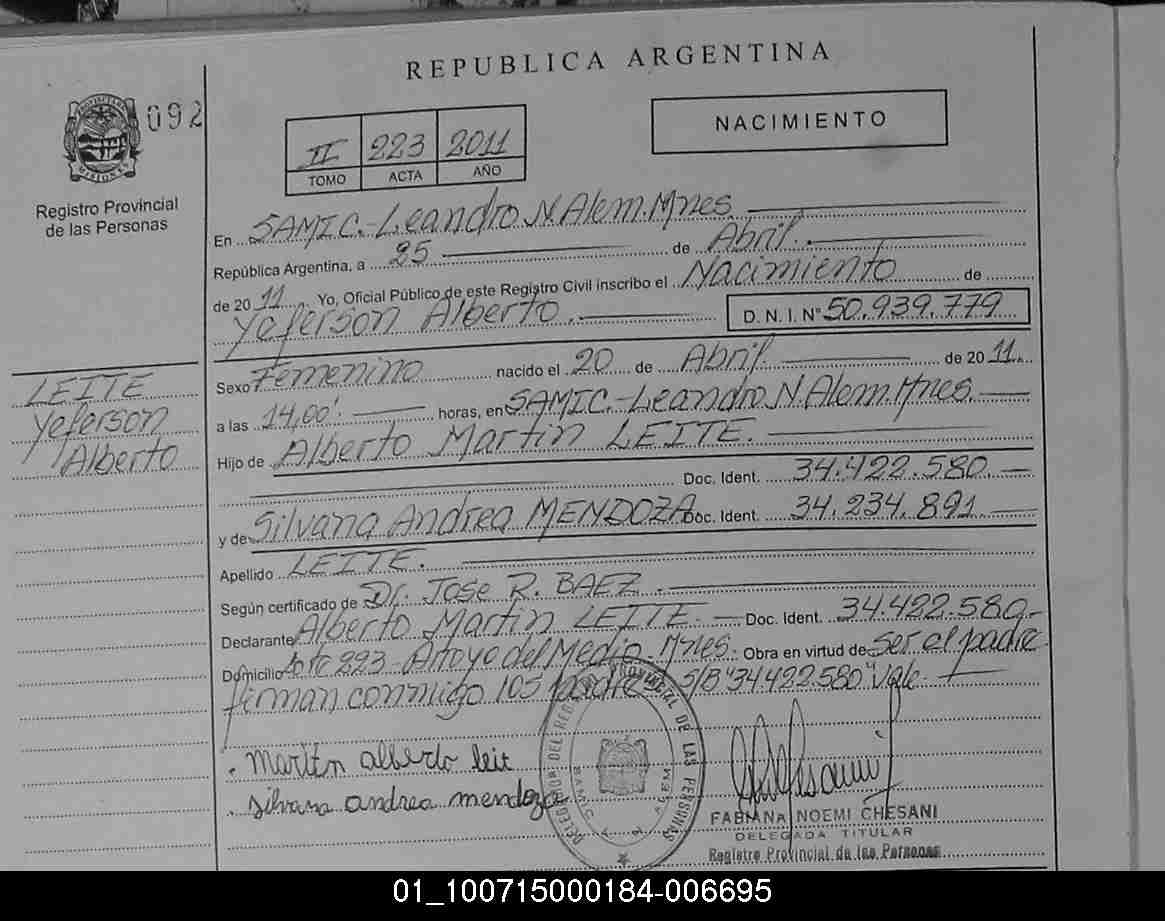 REPUBLICA ARGENTINA
092
PROVINCIA DE
MISIONES
Registro Provincial
de las Personas
II 223 2011
TOMO ACTA AÑO
NACIMIENTO
En SAMIC.-Leandro N. Alem. Mnes.
República Argentina, a 25 de Abril.
de 2011, Yo, Oficial Público de este Registro Civil inscribo el Nacimiento de
Yeferson Alberto. D. N. I. N° 50.939.779
Sexo Femenino nacido el 20 de Abril. de 2011.
a las 14,00'. horas, en SAMIC.-Leandro N. Alem. Mnes.
Hijo de Alberto Martin LEITE.
Doc. Ident. 34.422.580
y de Silvana Andrea MENDOZA Doc. Ident. 34.234.891
Apellido LEITE.
Según certificado de Dr. Jose R. BAEZ.
Declarante Alberto Martin LEITE. Doc. Ident. 34.422.580-
Domicilio 223-Arroyo del Medio. Mnes. Obra en virtud de Ser el padre
firman conmigo los padres S/B "34422580" Vale.
LEITE
Yeferson
Alberto
. martin alberto leit
. silvana andrea mendoza
DELEGADO DEL REGISTRO PROVINCIAL DE LAS PERSONAS
FABIANA NOEMI CHESANI
DELEGADA TITULAR
Registro Provincial de las Personas
01_100715000184-006695